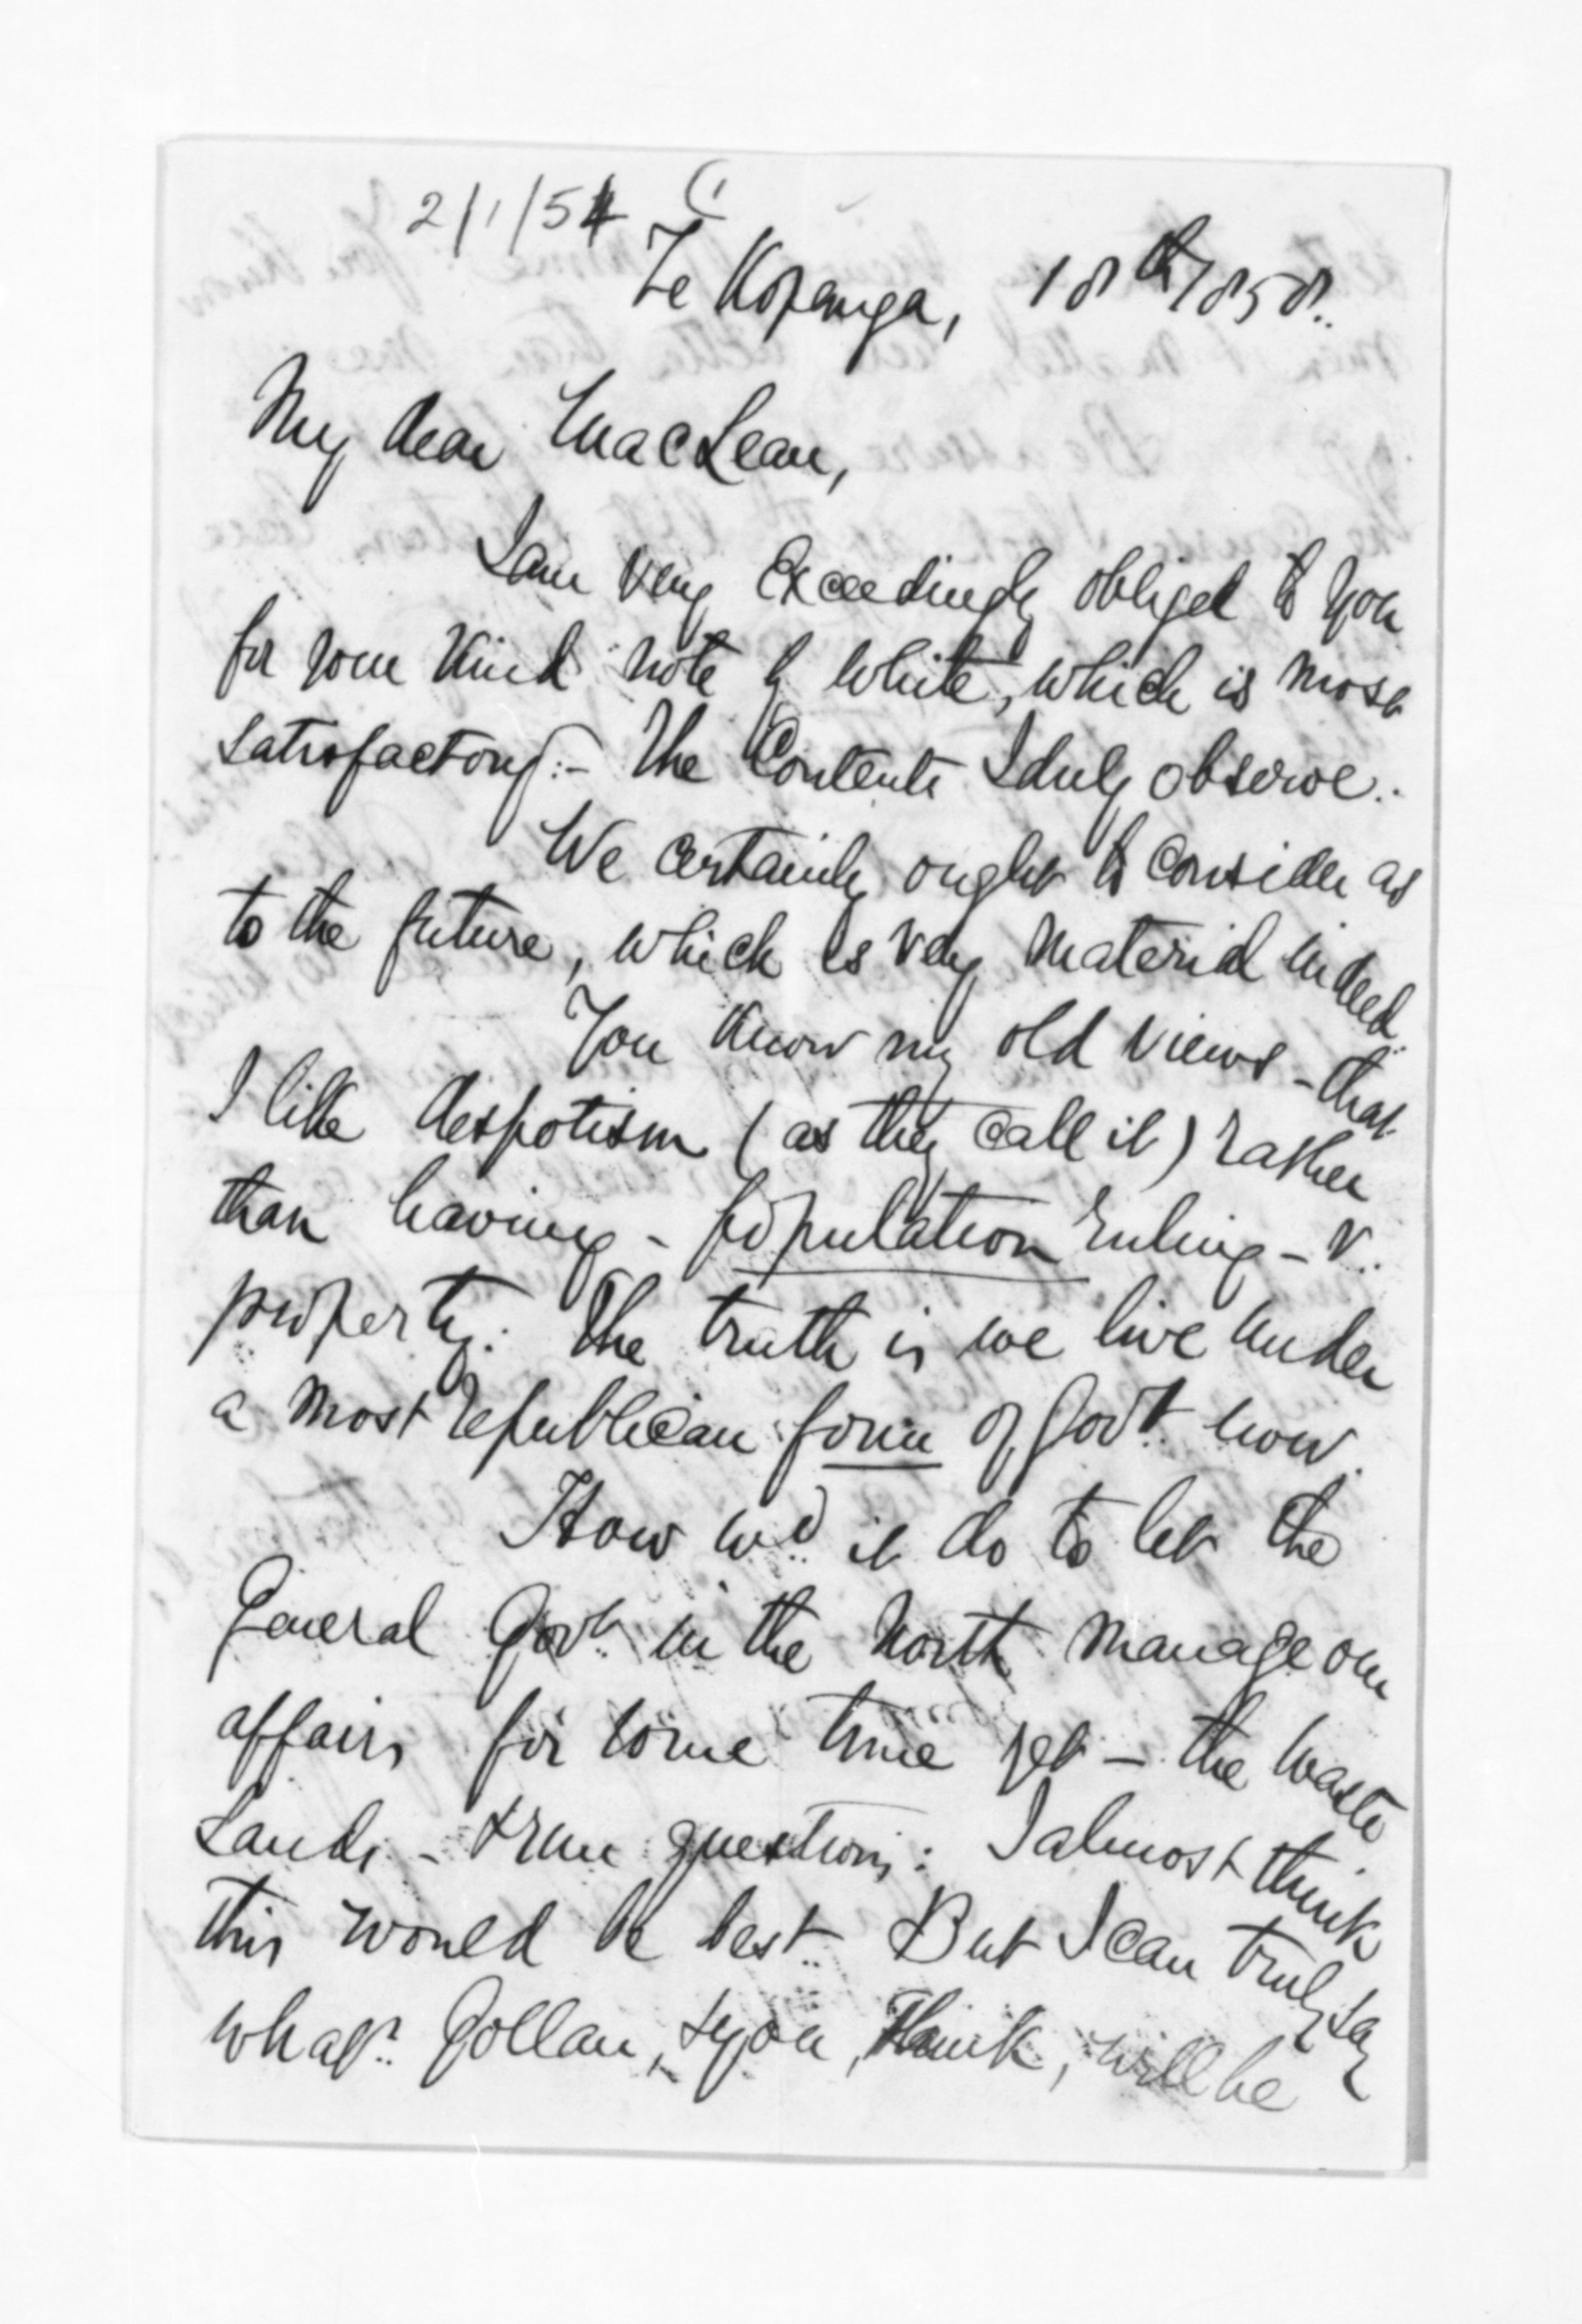 2/1/54
Te Kopanga, 18th/858.
My dear MacLean,
I am very exceedingly obliged to you
for your kind note by White, which is most
satisfactory:- The Contents I duly observe.
We certainly ought to consider as
to the future, which is very material indeed.
You know my old views - that
I like despotism (as they call it) rather
than having - population ruling - v.
property. The truth is we live under
a most republican form of Govt. now.
How wd. it do to let the
General Govt. in the North manage our
affairs for some time yet - the Waste
Lands - questions: I almost think
this would be best. But I can truly say
what Gollan, & you, think, will be